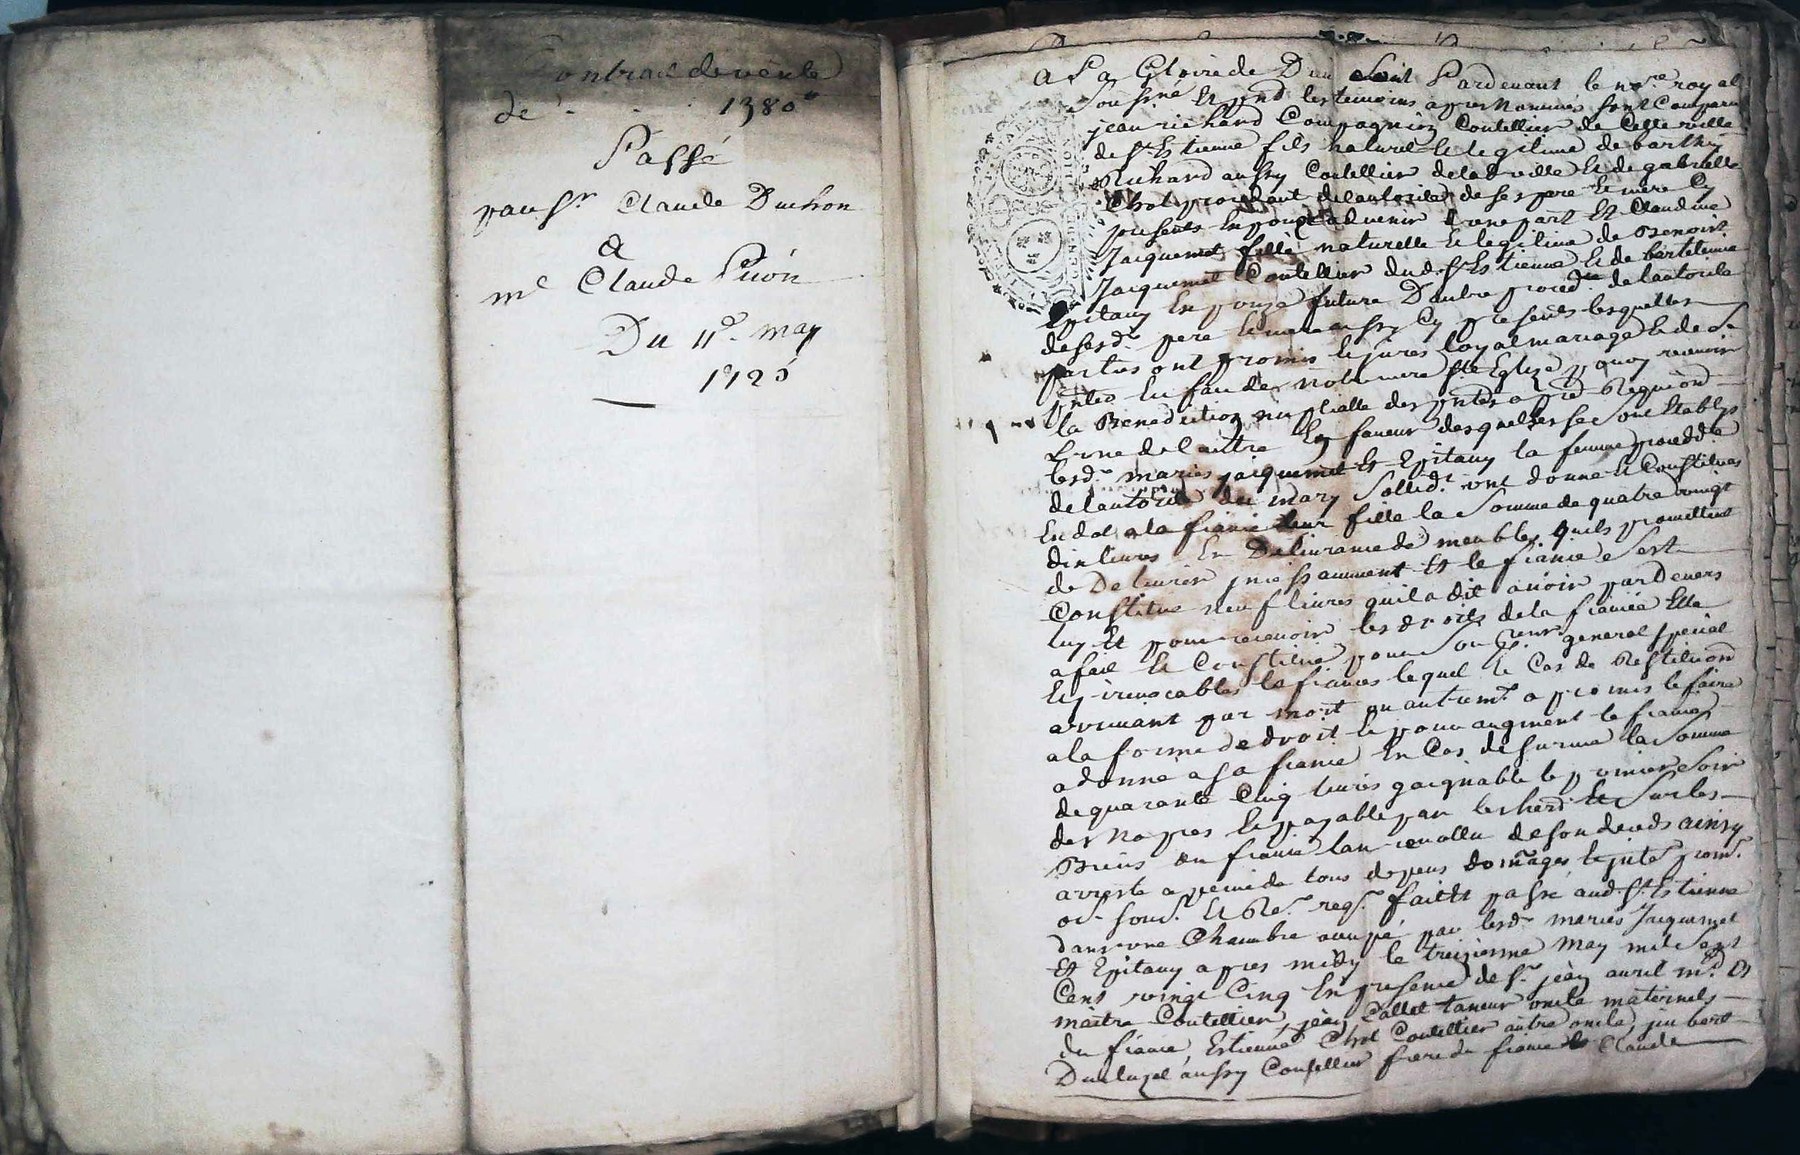 Contract de vente
de 1380#
Passé
par Sr Claude Duchon
a
me Claude
Du 11e may
1725
A La Gloire de Dieu Soit Pardevant le nore royal
Sousigné Et pnts les temoins apres Nommés sont Comparu
jean richard Compagnion Coutellier de Cette ville
de St Estienne fils naturel et legitime de barthy
Richard aussy Coutellier de lad ville Et de gabrielle
Chol procedant de lautorité de ses pere et mere Cy
presents Epoux advenir d'une part Et Claudine
Jacquemet fille naturelle et legitime de Benoist
Jacquemet Coutellier dud St Estienne Et de bartelemie
Epitauy Epouze future D'autre proced. de lautorite
de sesd. pere et mere aussy Cy presents lesquelles
parties ont promis et jures loyal mariage et de se
pnter En face de notre mere Ste Eglize pour recevoir
la Benediction nuptialle des pntes apred Requiond
Lune de lautre En faveur desquelles se sont Etablys
lesd. mariés jacquemet Et Epitauy la femme procedte
de lautorité du mary sollid. ont donné et Constitués
En dot a la fiancé leur fille la Somme de quatre vingt
dix livres En Delivrance de meubles quils promettent
de Delivrer incessamment Et le fiancé sest
Constitué neuf livres quil a dit avoir pardevers
luy Et pour recevoir les droits de la fiancée Elle
a fait et Constitué pour son Pcreur general special
Et irrevocable le fiancé lequel le Cas de Restitution
arrivant par mort ou autremt a promis le faire
a la forme de droit et pour augment le fiancé
a donné a sa fiancée En Cas de survie la Somme
de quarante Cinq livres gaignable le premier soir
des Nopces Et payable par les herit. Et Sur les
Biens du fiancé lan revollu de son deceds ainsy
arresté a peine de tous depens domages et intes prom.
obl. soum. Et Re. req. fait Et passé aud St Estienne
dans une Chambre occupé par lesd. mariés Jacquemet
Et Epitauy apres midy le treizieme may mil Sept
Cent vingt Cinq En presence de Sr jean avril md Et
maitre Coutellier, jean Callet taneur oncle maternels
du fiancé, Estienne Chol Coutellier autre oncle,
aussy Coutellier frere du fiancé Claude